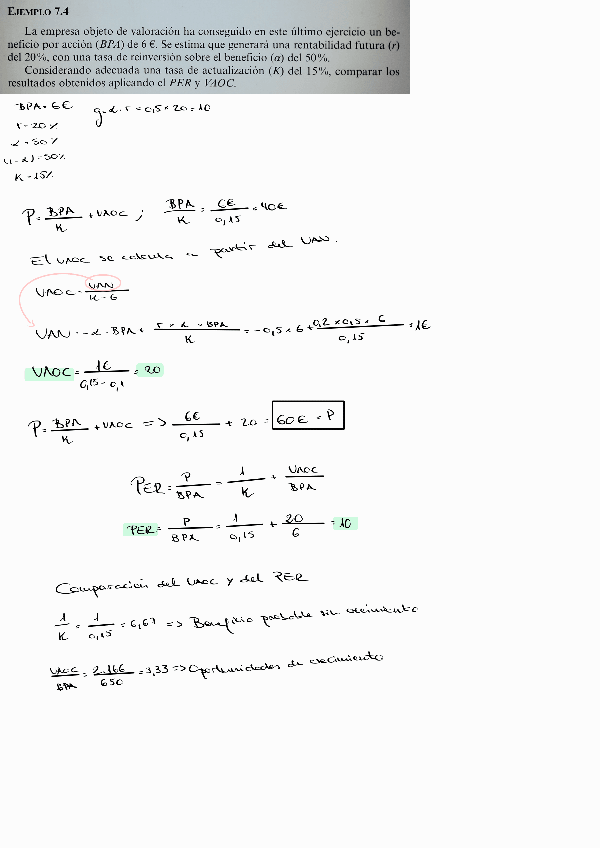 EJEMPLO 7.4
La empresa objeto de valoración ha conseguido en este último ejercicio un be-
neficio por acción (BPA) de 6 €. Se estima que generará una rentabilidad futura (r)
del 20%, con una tasa de reinversión sobre el beneficio (α) del 50%.
Considerando adecuada una tasa de actualización (K) del 15%, comparar los
resultados obtenidos aplicando el PER y VAOC.
BPA = 6€ g = α · r = 0,5 × 20 = 10
r = 20%
α = 50%
(1 - α) = 50%
K = 15%
P = BPA/K + VAOC ; BPA/K = 6€/0,15 = 40€
El VAOC se calcula a partir del VAN.
VAOC = VAN/K - G
VAN = -α · BPA + r × α × BPA/K = -0,5 × 6 + 0,2 × 0,5 × 6/0,15 = 1€
VAOC = 1€/0,15 - 0,1 = 20
P = BPA/K + VAOC => 6€/0,15 + 20 = 60€ = P
PER = P/BPA = 1/K + VAOC/BPA
PER = P/BPA = 1/0,15 + 20/6 = 10
Comparación del VAOC y del PER
1/K = 1/0,15 = 6,67 => Beneficio probable sin crecimiento
VAOC/BPA = 2.166/650 = 3,33 => Oportunidades de crecimiento